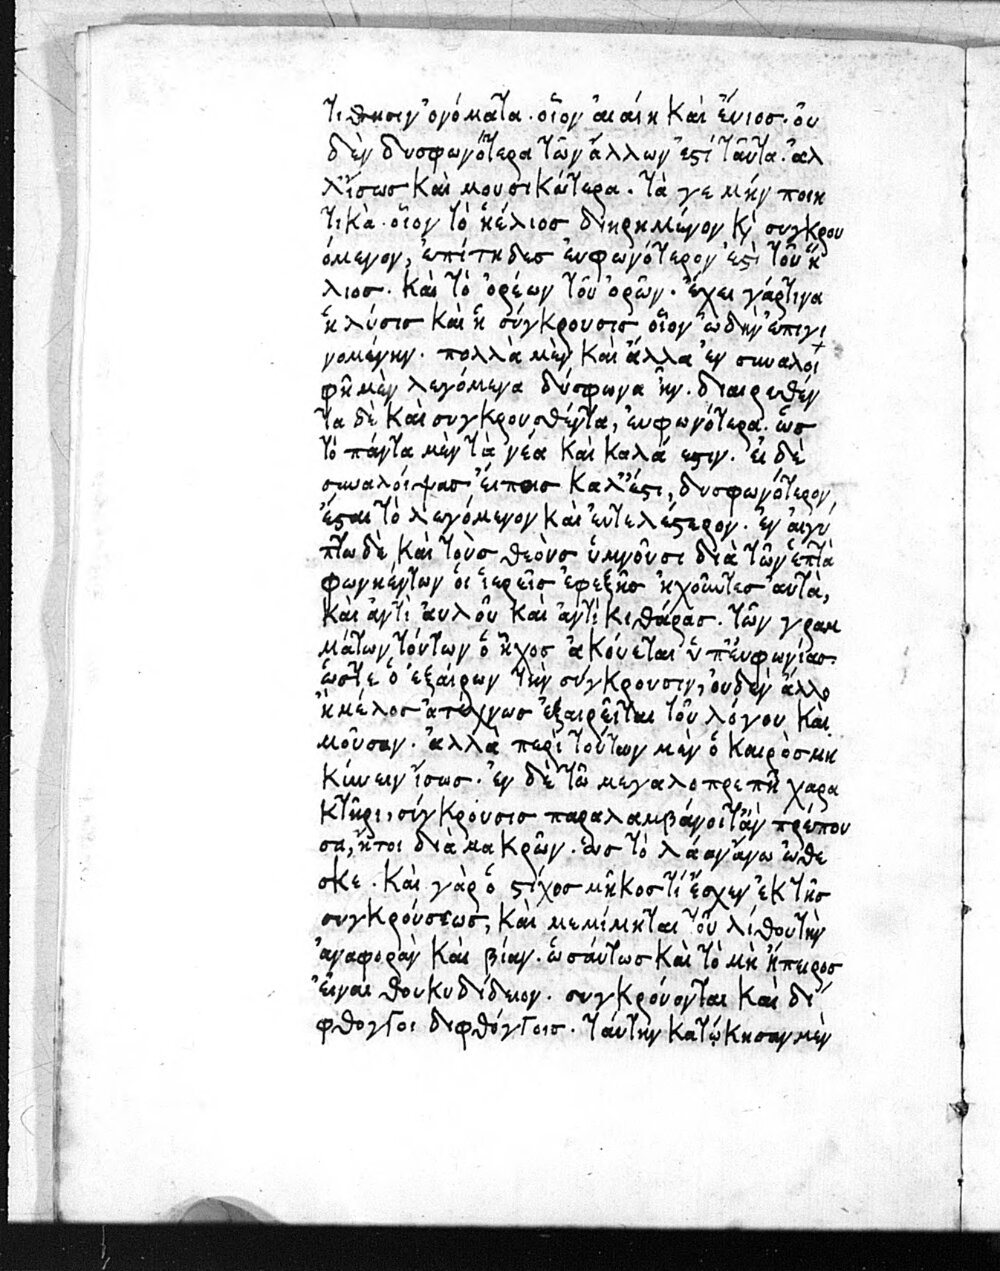 τίθησιν ὀνόματα· οἷον ἀιαίη καὶ ἔνιος· οὐ
δὲν δυσφωνότερα τῶν ἄλλων ἐστὶ ταῦτα· ἀλ
λ' ἴσως καὶ μουσικώτερα· τὰ γε μὴν ποιη
τικὰ· οἷον τὸ ἠέλιος διηρημένον κ̀ συγκρου
όμενον, ἐπίτηδες ἐυφωνότερόν ἐστι τοῦ ἥ
λιος· καὶ τὸ ὀρέων τοῦ ὀρῶν· ἔχει γάρ τινα
ἡ λύσις καὶ ἡ σύγκρουσις οἷον ὠδὴν ἐπιγι
νομένην· πολλὰ μὲν καὶ ἄλλα ἐν συναλοι
φῆ μὲν λεγόμενα δύσφωνα ἦν· διαιρεθέν
τα δὲ καὶ συγκρουσθέντα, ἐυφωνότερα· ὡς
τὸ πάντα μὲν τὰ νέα καὶ καλά ἐστιν· εἰ δὲ
συναλοίψας εἴποις καλ' ἐστὶ, δυσφωνότερον,
ἔσται τὸ λεγόμενον καὶ ἐυτελέστερον· ἐν ἀιγύ
πτω δὲ καὶ τοὺς θεοὺς ὑμνοῦσι διὰ τῶν ἑπτὰ
φωνηέντων οἱ ἱερεῖς ἐφεξῆς ἠχοῦντες αὐτὰ,
καὶ ἀντὶ ἀυλοῦ καὶ ἀντὶ κιθάρας· τῶν γραμ
μάτων τούτων ὁ ἦχος ἀκούεται ὑπ' ἐυφωνίας·
ὥστε ὁ ἐξαίρων τὴν σύγκρουσιν, οὐδὲν ἄλλο
ἢ μέλος ἀτέχνως ἐξαιρεῖται τοῦ λόγου καὶ
μοῦσαν· ἀλλὰ περὶ τούτων μὲν ὁ καιρὸς μη
κύνειν ἴσως· ἐν δὲ τῶ μεγαλοπρεπῆ χαρα
κτῆρι, σύγκρουσις παραλαμβάνοιτ' ἂν πρέπου
σα, ἤτοι διὰ μακρῶν· ὡς τὸ λᾶαν ἄνω ὤθε
σκε· καὶ γὰρ ὁ στίχος μῆκός τι ἔσχεν ἐκ τῆς
συγκρούσεως, καὶ μεμίμηται τοῦ λίθου τὴν
ἀναφορὰν καὶ βίαν· ὡσάυτως καὶ τὸ μὴ ἤπειρος
εἶναι θουκυδίδειον· συγκρούονται καὶ δί
φθογγοι διφθόγγοις· ταύτην κατῴκησαν μὲν